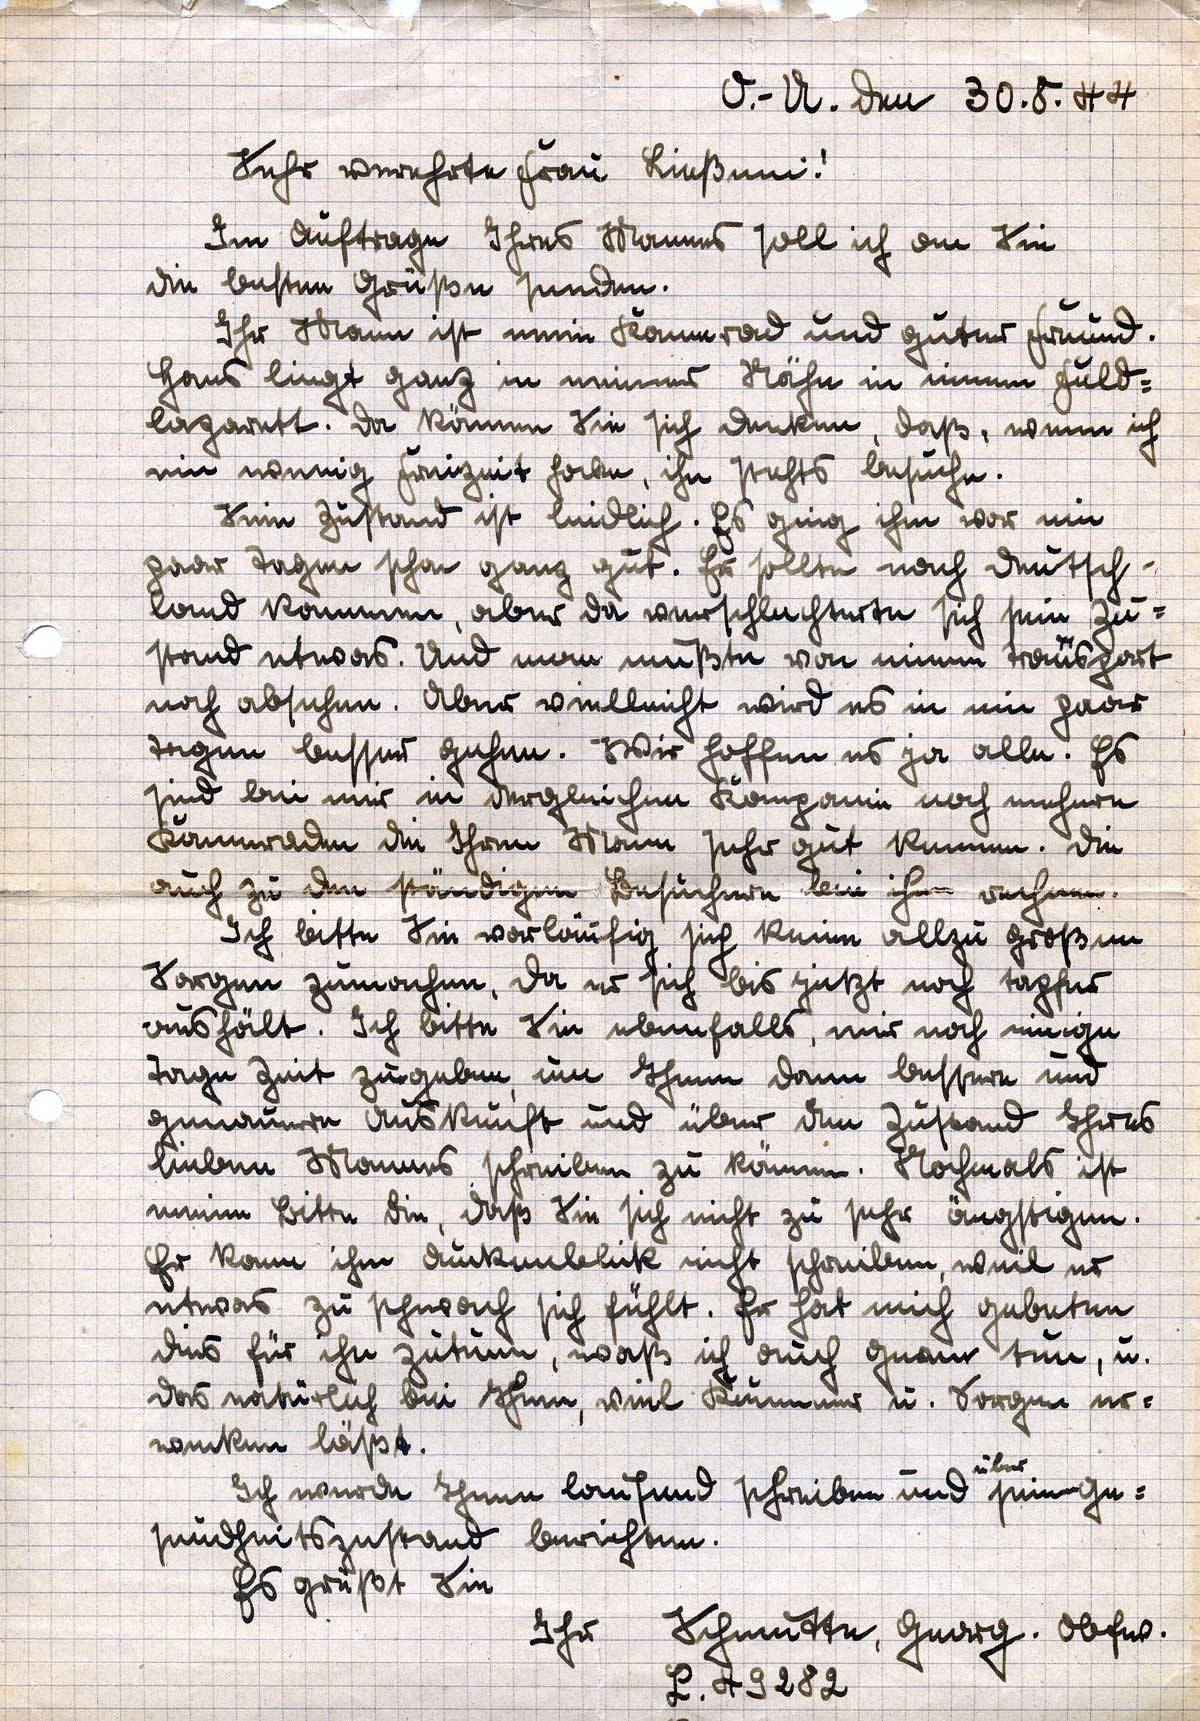 O.-U. den 30.8.44
Sehr verehrte Frau
Im Auftrage Ihres Mannes soll ich an Sie
die besten Grüße senden.
Ihr Mann ist mein Kamerad und guter Freund.
Hans liegt ganz in meiner Nähe in einem Feld=
lazarett. Da können Sie sich denken, daß, wenn ich
ein wenig Freizeit habe, ihn stehts besuche.
Sein Zustand ist leidlich. Es ging ihm vor ein
paar Tagen schon ganz gut. Er sollte nach Deutsch-
land kommen, aber da verschlechterte sich sein Zu=
stand etwas. Und man mußte von einem Transport
noch absehen. Aber vielleicht wird es in ein paar
Tagen besser gehen. Wir hoffen es ja alle. Es
sind bei mir in dergleichen Kompanie noch mehere
Kameraden die Ihren Mann sehr gut kennen. Die
auch zu den ständigen Besuchern bei ihm rechnen.
Ich bitte Sie vorläufig sich keine allzu großen
Sorgen zumachen, da er sich bis jetzt noch tapfer
aushält. Ich bitte Sie ebenfalls, mir noch einige
Tage Zeit zugeben, um Ihnen dann bessere und
genauere Auskunft und über den Zustand Ihres
lieben Mannes schreiben zu können. Nochmals ist
meine Bitte die, daß Sie sich nicht zu sehr ängstigen.
Er kann ihm Aukenblick nicht schreiben, weil er
etwas zu schwach sich fühlt. Er hat mich gebeten
dies für ihn zutuen, waß ich auch gern tue, u.
das natürlich bei Ihnen, viel Kummer u. Sorgen er=
wecken läßt.
Ich werde Ihnen laufend schreiben und über sein Ge=
sundheitszustand berichten.
Es grüßt Sie
Ihr Schmutte, Georg. Obfw.
L. 49282